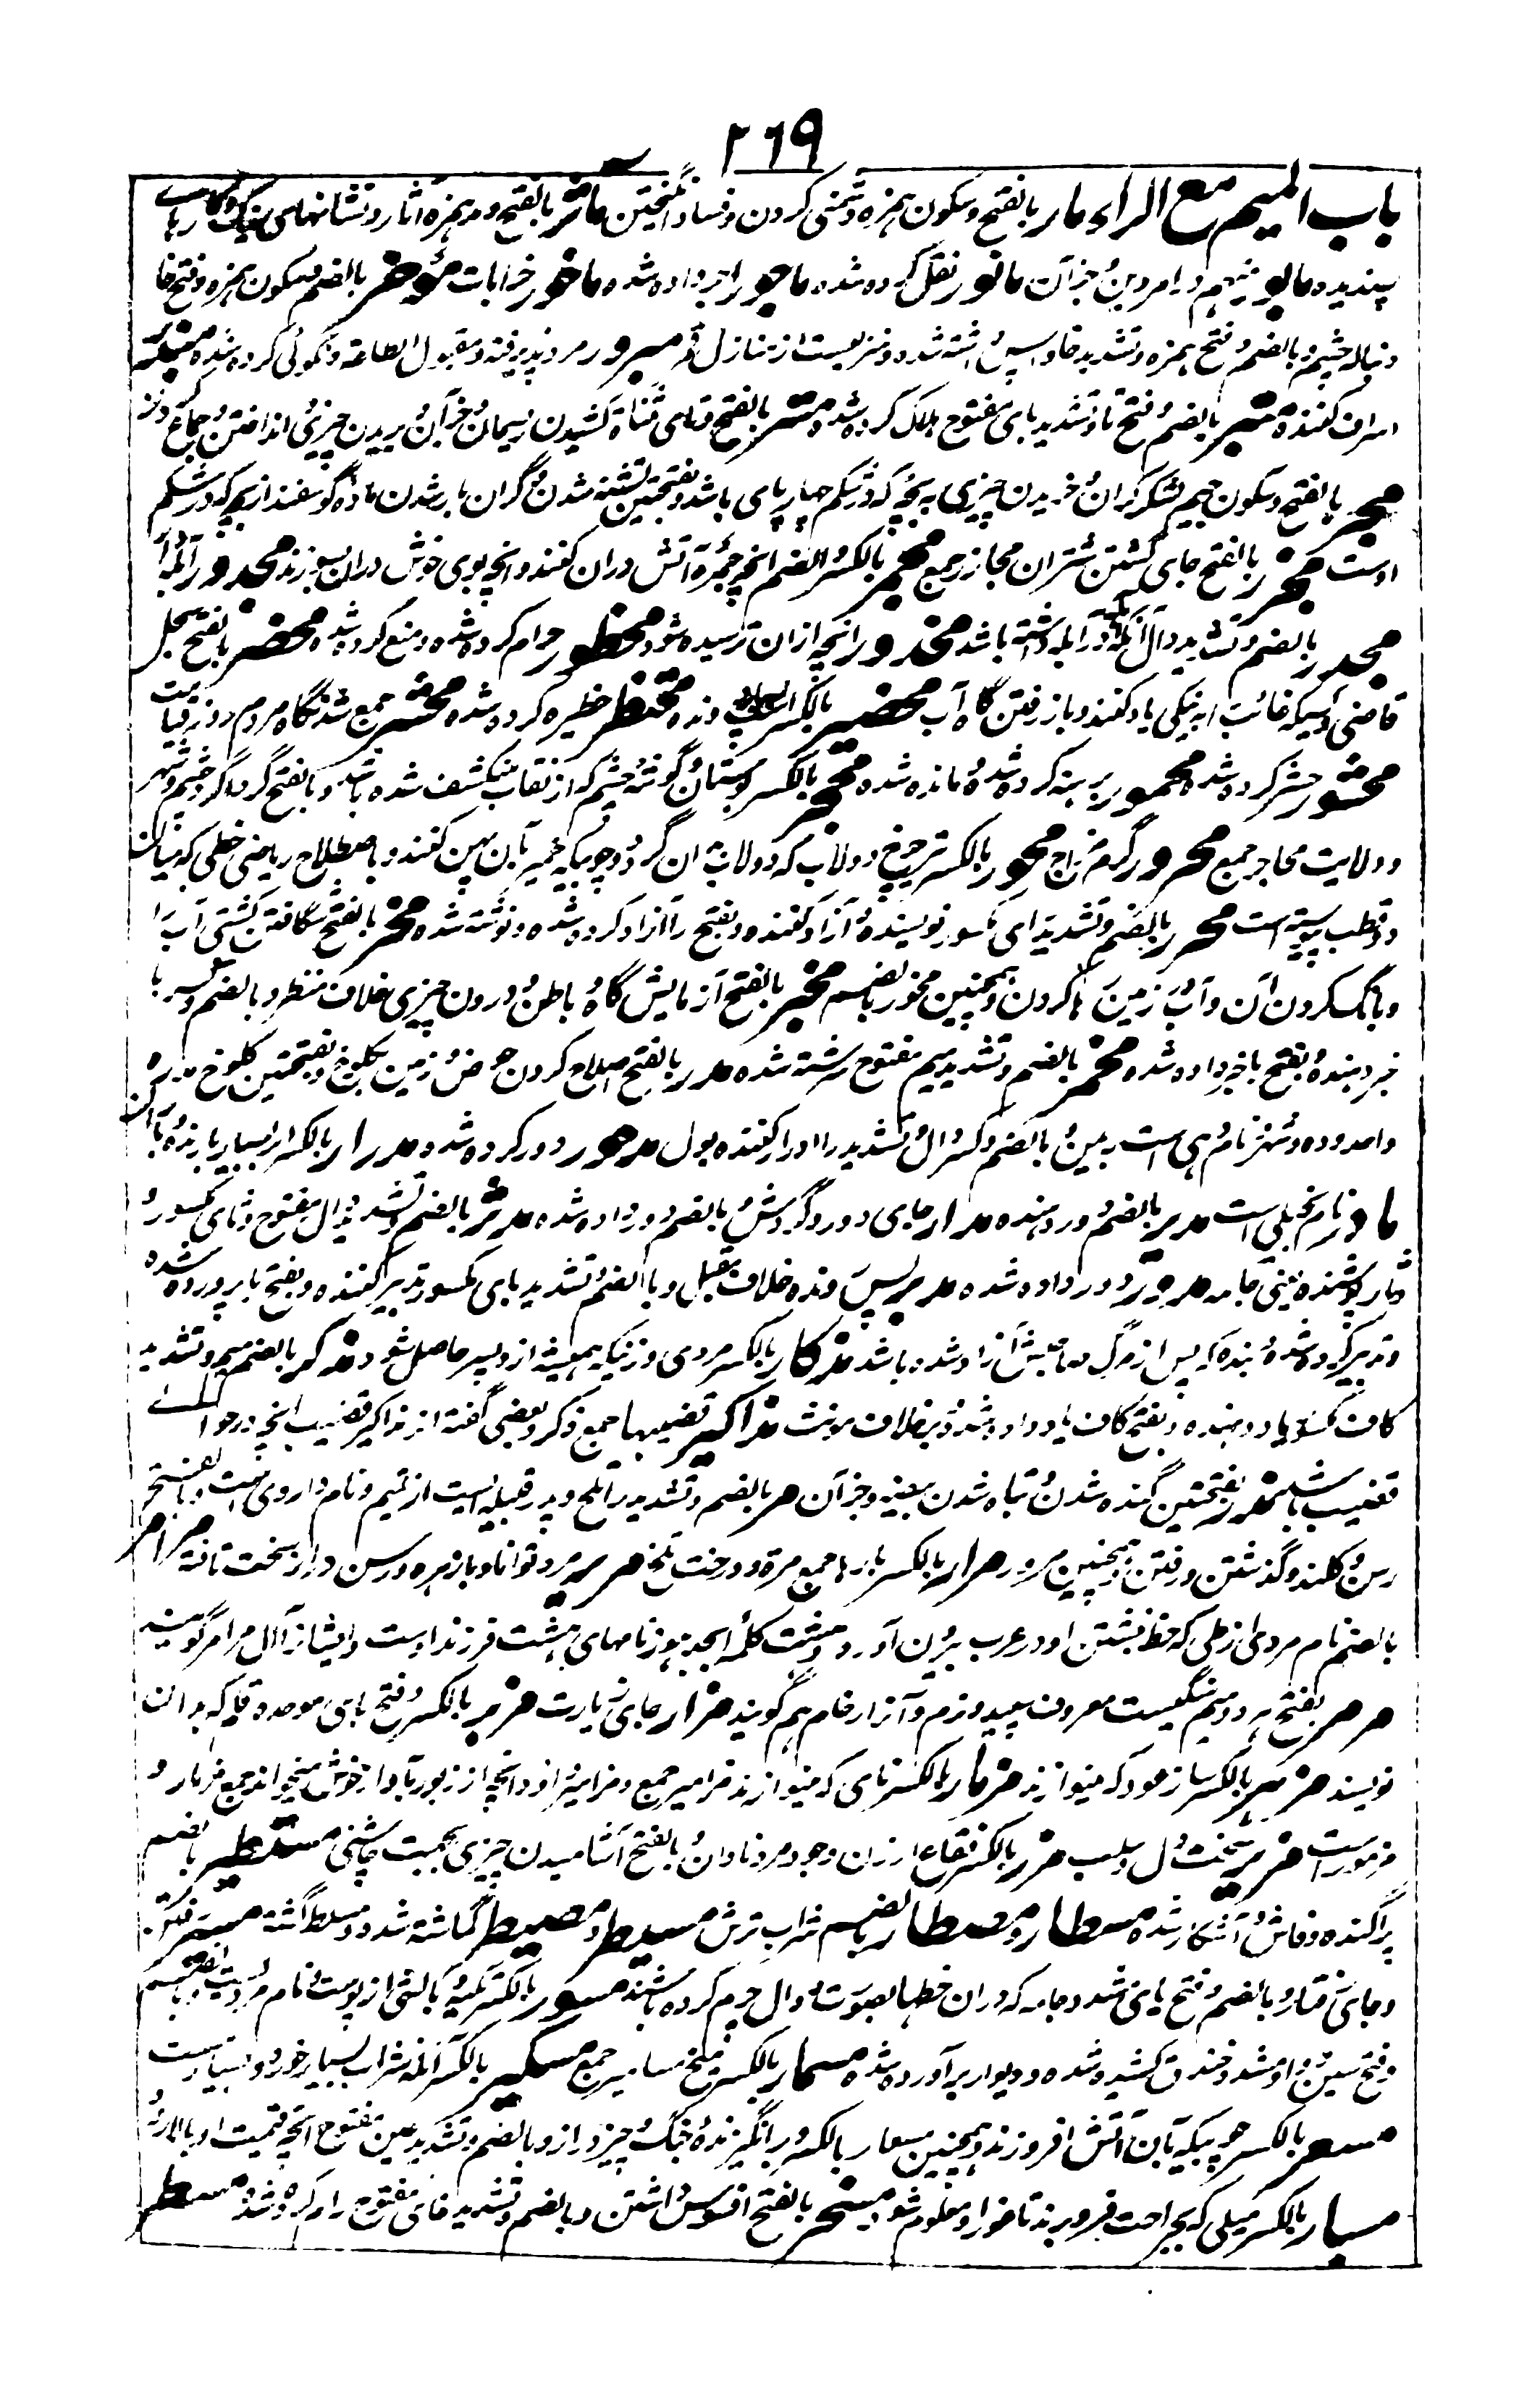 ۲۶۹
باب المیم مع الراء مار بالفتح و سکون همزه دشمنی کردن و فساد انگیختن مآثر بالفتح و مد همزه آثار و نشانهای نیک و کارهای
پسندیده مابور متهم در امر دین و جز آن ماثور نقل کرده شده ماجور اجر داده شده ماخور خرابات مؤخر بالضم و سکون همزه و فتح خا
دنباله چشم و بالضم و فتح همزه و تشدید خا واپس داشته شده و منزلیست از منازل قمر مبرور مرد پذیرفته و مقبول الطاعة و نکوئی کرده شده مبذر
اسراف کننده متبر بالضم و فتح تا و تشدید بای مفتوح هلاک کرده شده متر بالفتح و تای مثناة کشیدن ریسمان و جز آن و بریدن چیزی و انداختن و جماع کردن
مجر بالفتح و سکون جیم لشکر گران و خریدن چیزی به بچه که در شکم چارپای باشد و بفتحتین تشنه شدن و گران بار شدن ماده گوسفند از بچه که در شکم
اوست مجزر بالفتح جای کشتن شتران مجازر جمع مجمر بالکسر و الضم انچه جمره آتش دران کنند و انچه بوی خوش دران بسوزند مجدور آبله دار
مجدر بالضم و تشدید دال آنکه آبله داشته باشد محذور انچه ازان ترسیده شود محظور حرام کرده شده و منع کرده شده محضر بالفتح سجل
قاضی و کسیکه غائب را به نیکی یاد کند و بازرفتن گاه آب محضیر بالکسر اسپ دونده محتظر حظیره کرده شده محشر جمع شدنگاه مردم روز قیامت
محشور حشر کرده شده محسور برهنه کرده شده و مانده شده محجر بالکسر بوستان و گوشه چشم که از نقاب منکشف شده باشد و بالفتح گرداگرد چشم و شهر
و ولایت محاجر جمع محرور گرم مزاج محور بالکسر تیر چرخ دولاب که دولاب بان گردد و چوبیکه خمیر بآن پهن کنند و باصطلاح ریاضی خطی که میان
دو قطب پیوسته است محرر بالضم و تشدید رای مکسور نویسنده و آزاد کننده و بفتح را آزاد کرده شده و نوشته شده مخر بالفتح شگافتن کشتی آب را
و بانگ کردن آن و آب زمین رها کردن و همچنین مخور بالضم مخبر بالفتح آزمایش گاه و باطن و درون چیزی خلاف منظر و بالضم و کسر با
خبر دهنده و بفتح با خبر داده شده مخمر بالضم و تشدید میم مفتوح سرشته شده مدر بالفتح اصلاح کردن حوض و زمین بکلوخ و بفتحتین کلوخ مدره
واحد و ده و شهر و نام دهی است به یمن و بالضم و کسر دال و تشدید را ادرار کننده بول مدحور دور کرده شده مدرار بالکسر ابر بسیار بارنده و باران
مادر نام بخیلی است مدیر بالضم دور دهنده مدار جای دور و گردش و بالضم دور داده شده مدثر بالضم و تشدید دال مفتوح و ثای مکسور
دثار پوشنده یعنی جامه مدور دور داده شده مدبر پس رونده خلاف مقبل و بالضم و تشدید بای مکسور تدبیر کننده و بفتح با پرورده شده
و تدبیر کرده شده و بنده که پس از مرگ صاحبش آزاد شده باشد مذکار بالکسر مردی و زنیکه همیشه ازو پسر حاصل شود مذکر بالضم میم و تشدید
کاف مکسور یاد دهنده و بفتح کاف یاد داده شده و نر خلاف مونث مذاکیر قضیبها جمع ذکر و بعضی گفته اند مذاکیر قضیب و انچه در حوالی
قضیب باشد مذر بفتحتین گنده شدن و تباه شدن بیضه و جز آن مر بالضم و تشدید را تلخ و پدر قبیله ایست از تمیم و نام داروی است و بالفتح
رسن و کلند و گذشتن و رفتن و همچنین مرور مرار بالکسر بارها جمع مرة و درخت تلخ مریر مرد توانا و با زهره و رسن دراز سخت تافته مرامر
بالضم نام مردی از طی که خط نبشتن او در عرب بیرون آورد و هشت کلمه ابجد هوز نامهای هشت فرزند اوست و ایشانرا آل مرامر گویند
مرمر بفتح هر دو میم سنگیست معروف سپید و نرم و آنرا رخام هم گویند مزار جای زیارت مزبر بالکسر و فتح بای موحده قلم که بدان
نویسند مزهر بالکسر ساز عود که مینوازند مزمار بالکسر نای که مینوازند مزامیر جمع و مزامیر داود انچه از زبور بآواز خوش میخواند جمع مزمار و
مزمور است مزیر سخت دل و صلب مزر بالکسر فقاع ارزن و جو و مرد نادان و بالفتح آشامیدن چیزی بجهت چاشنی مستطیر بالضم
پراگنده و فاش و آشکار شده مسطار و مصطار بالضم شراب ترش مسیطر و مصیطر گماشته شده و مسلط گشته مسیر رفتن
و جای رفتار و بالضم و فتح یای مشدد جامه که دران خطها بصورت دوال چرم کرده باشند مسور بالکسر تکیه و بالش از پوست و نام مردیست و بالضم
و فتح سین و واو مشدد خندق کشیده شده و دیوار برآورده شده مسمار بالکسر میخ مسامیر جمع مسکیر بالکسر آنکه شراب بسیار خورد و بسیار مست
مسعر بالکسر چوبیکه بآن آتش افروزند و همچنین مسعار بالکسر و برانگیزنده جنگ و چیز دراز و بالضم و تشدید عین مفتوح انچه قیمت او بالا رود
مسبار بالکسر میلی که بجراحت فرو برند تا غور او معلوم شود مسخر بالفتح افسوس داشتن و بالضم و تشدید خای مفتوح رام کرده شده مسطر